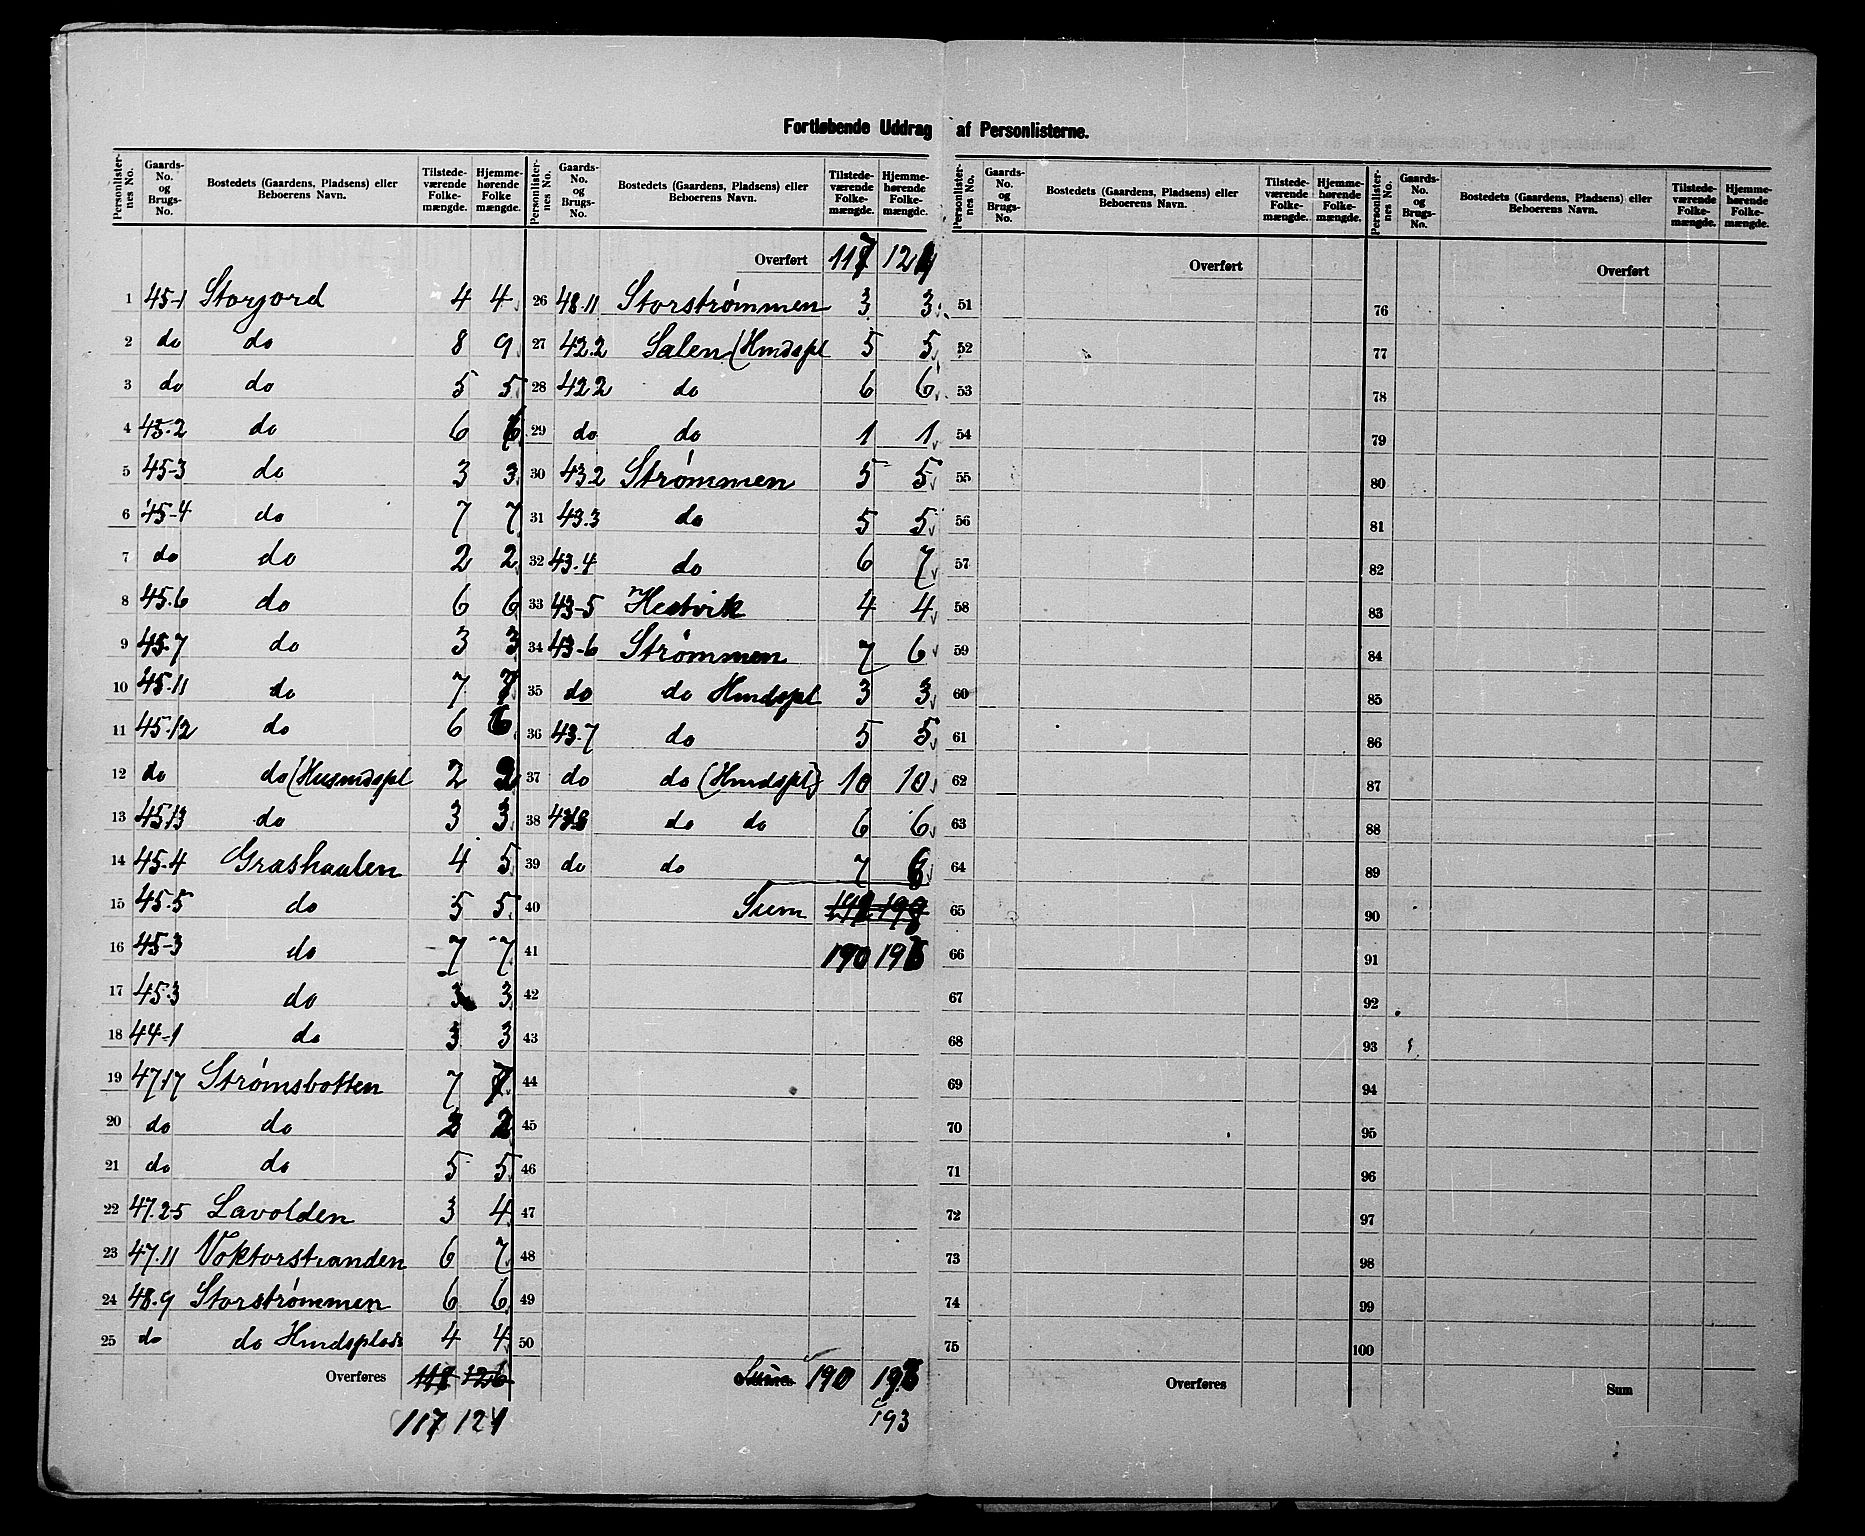 Fortløbende Uddrag af Personlisterne.
Personlister-nes No. Gaards-No. og Brugs-No. Bostedets (Gaardens, Pladsens) eller Beboerens Navn. Tilstede-værende Folke-mængde. Hjemme-hørende Folke mængde.
1 45-1 Storjord 4 4
2 do do 8 9
3 do do 5 5
4 45.2 do 6 6
5 45-3 do 3 3
6 45-4 do 7 7
7 do do 2 2
8 45.6 do 6 6
9 45.7 do 3 3
10 45.11 do 7 7
11 45.12 do 6 6
12 do do (Husmdspl 2 2
13 45.13 do 3 3
14 45.4 Grashaalen 4 5
15 45.5 do 5 5
16 45-3 do 7 7
17 45.3 do 3 3
18 44-1 do 3 3
19 47.17 Strømsbotten 7 7
20 do do 2 2
21 do do 5 5
22 47.25 Lavolden 3 4
23 47.11 Voktorstranden 6 7
24 48.9 Storstrømmen 6 6
25 do do Hmdsplads 4 4
Overføres 118 126
117 121
Personlister-nes No. Gaards-No. og Brugs-No. Bostedets (Gaardens, Pladsens) eller Beboerens Navn. Tilstede-værende Folke-mængde. Hjemme-hørende Folke-mængde.
Overført 117 124
26 48.11 Storstrømmen 3 3
27 42.2 Salen (Hmdspl 5 5
28 422 do 6 6
29 do do 1 1
30 432 Strømmen 5 5
31 43.3 do 5 5
32 43.4 do 6 7
33 43-5 Hestvik 4 4
34 43-6 Strømmen 7 6
35 do do Hmdspl 3 3
36 43.7 do 5 5
37 do do (Hmdspl) 10 10
38 438 do do 6 6
39 do do 7 6
40 Sum 198
41 190 196
42
43
44
45
46
47
48
49
50
Suma 190 196
193
Personlister-nes No. Gaards-No. og Brugs-No. Bostedets (Gaardens, Pladsens) eller Beboerens Navn. Tilstede-værende Folke-mængde. Hjemme-hørende Folke-mængde.
Overført
51
52
53
54
55
56
57
58
59
60
61
62
63
64
65
66
67
68
69
70
71
72
73
74
75
Overføres
Personlister-nes No. Gaards-No. og Brugs-No. Bostedets (Gaardens, Pladsens) eller Beboerens Navn. Tilstede-værende Folke-mængde. Hjemme-hørende Folke-mængde.
Overført
76
77
78
79
80
81
82
83
84
85
86
87
88
89
90
91
92
93
94
95
96
97
98
99
100
Sum